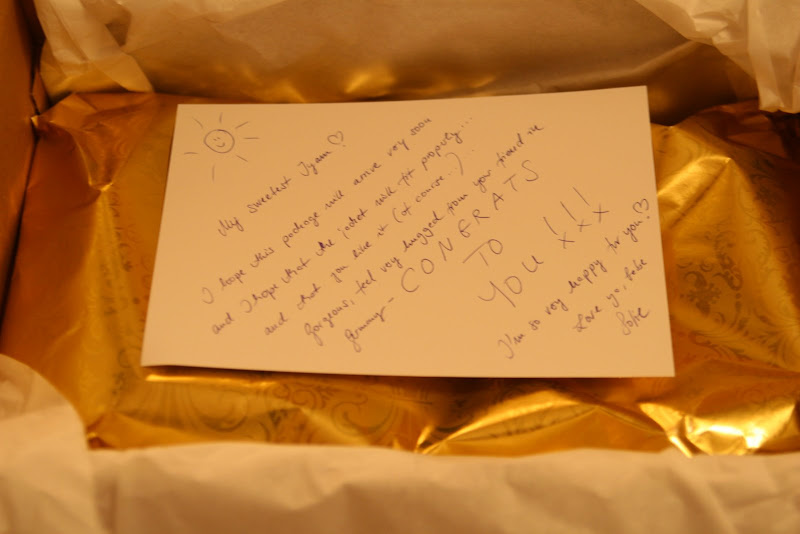 My sweetest Iyam ♡
I hope this package will arrive very soon
and I hope that the jacket will fit properly...
and that you like it (of course..).
Gorgeous, feel very hugged from your friend in
Germany -
CONGRATS
TO
YOU !!!
xxx
I'm so very happy for you! ♡
Love yo, babe
Sofie